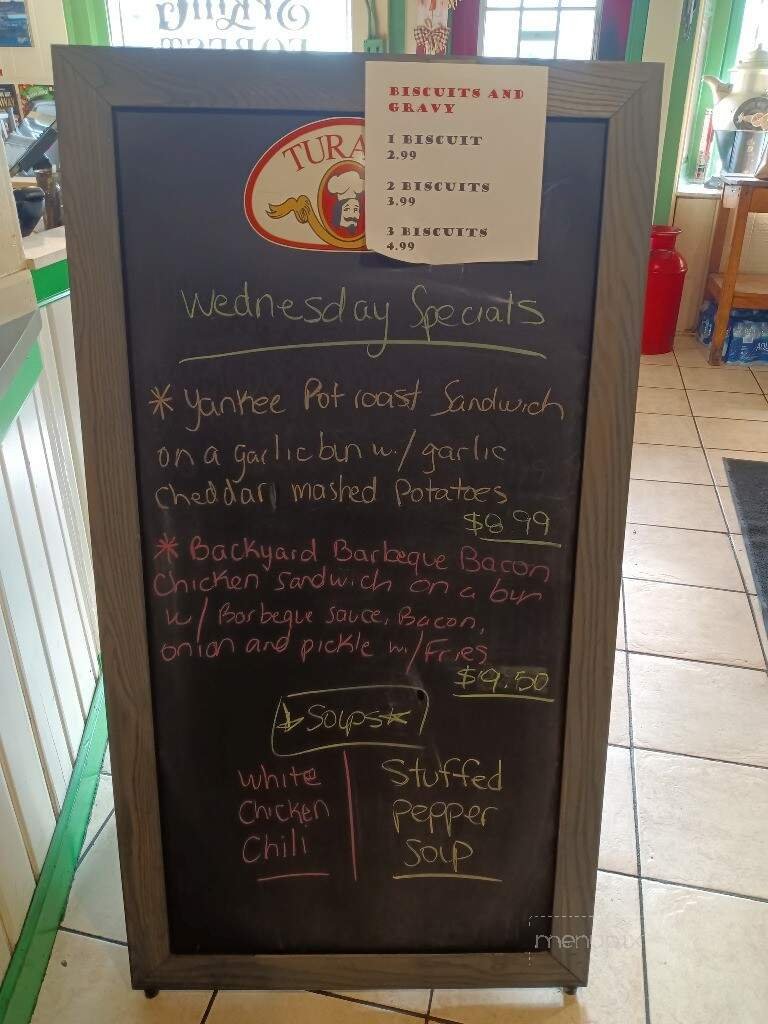 BISCUITS AND
GRAVY
1 BISCUIT
2.99
2 BISCUITS
3.99
3 BISCUITS
4.99
TURA
Wednesday Specials
* Yankee Pot roast Sandwich
on a garlic bun w/ garlic
Cheddar mashed Potatoes
$8.99
* Backyard Barbeque Bacon
Chicken Sandwich on a bun
w/ Barbeque sauce, Bacon,
onion and pickle w/ Fries
$9.50
Soups
White
Chicken
Chili
Stuffed
Pepper
Soup